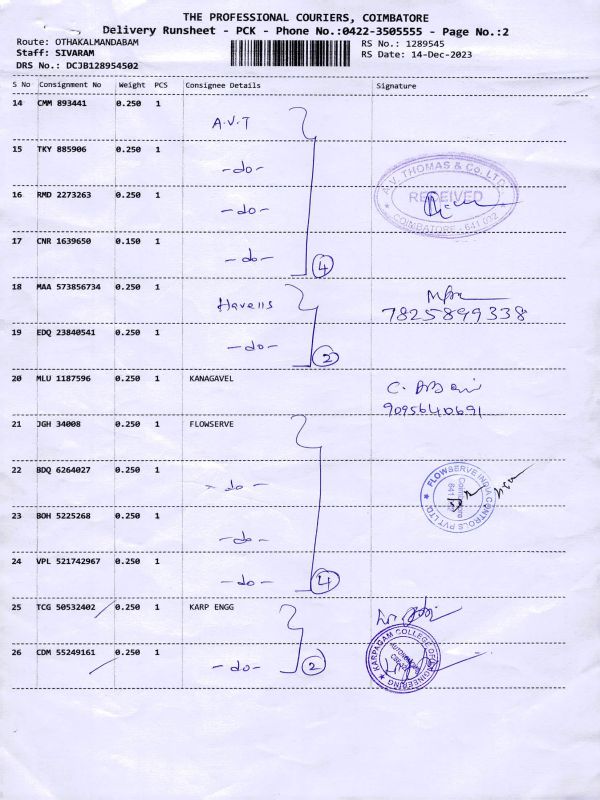 THE PROFESSIONAL COURIERS, COIMBATORE
Delivery Runsheet - PCK - Phone No.:0422-3505555 - Page No.:2
Route: OTHAKALMANDABAM
RS No.: 1289545
Staff: SIVARAM
RS Date: 14-Dec-2023
DRS No.: DCJB128954502
S No Consignment No Weight PCS Consignee Details Signature
14 CMM 893441 0.250 1 A.V.T
15 TKY 885906 0.250 1 -do-
16 RMD 2273263 0.250 1 -do-
A.V. THOMAS & Co. LTD.
RECEIVED
COIMBATORE - 641 032
17 CNR 1639650 0.150 1 -do- 4
18 MAA 573856734 0.250 1 Havells
7825899338
19 EDQ 23840541 0.250 1 -do- 2
20 MLU 1187596 0.250 1 KANAGAVEL
9095640691
21 JGH 34008 0.250 1 FLOWSERVE
22 BDQ 6264027 0.250 1 -do-
FLOWSERVE INDIA CONTROLS PVT LTD.
Coimbatore
23 BOH 5225268 0.250 1 -do-
24 VPL 521742967 0.250 1 -do- 4
25 TCG 50532402 0.250 1 KARP ENGG
26 CDM 55249161 0.250 1 -do- 2
KARPAGAM COLLEGE OF ENGINEERING